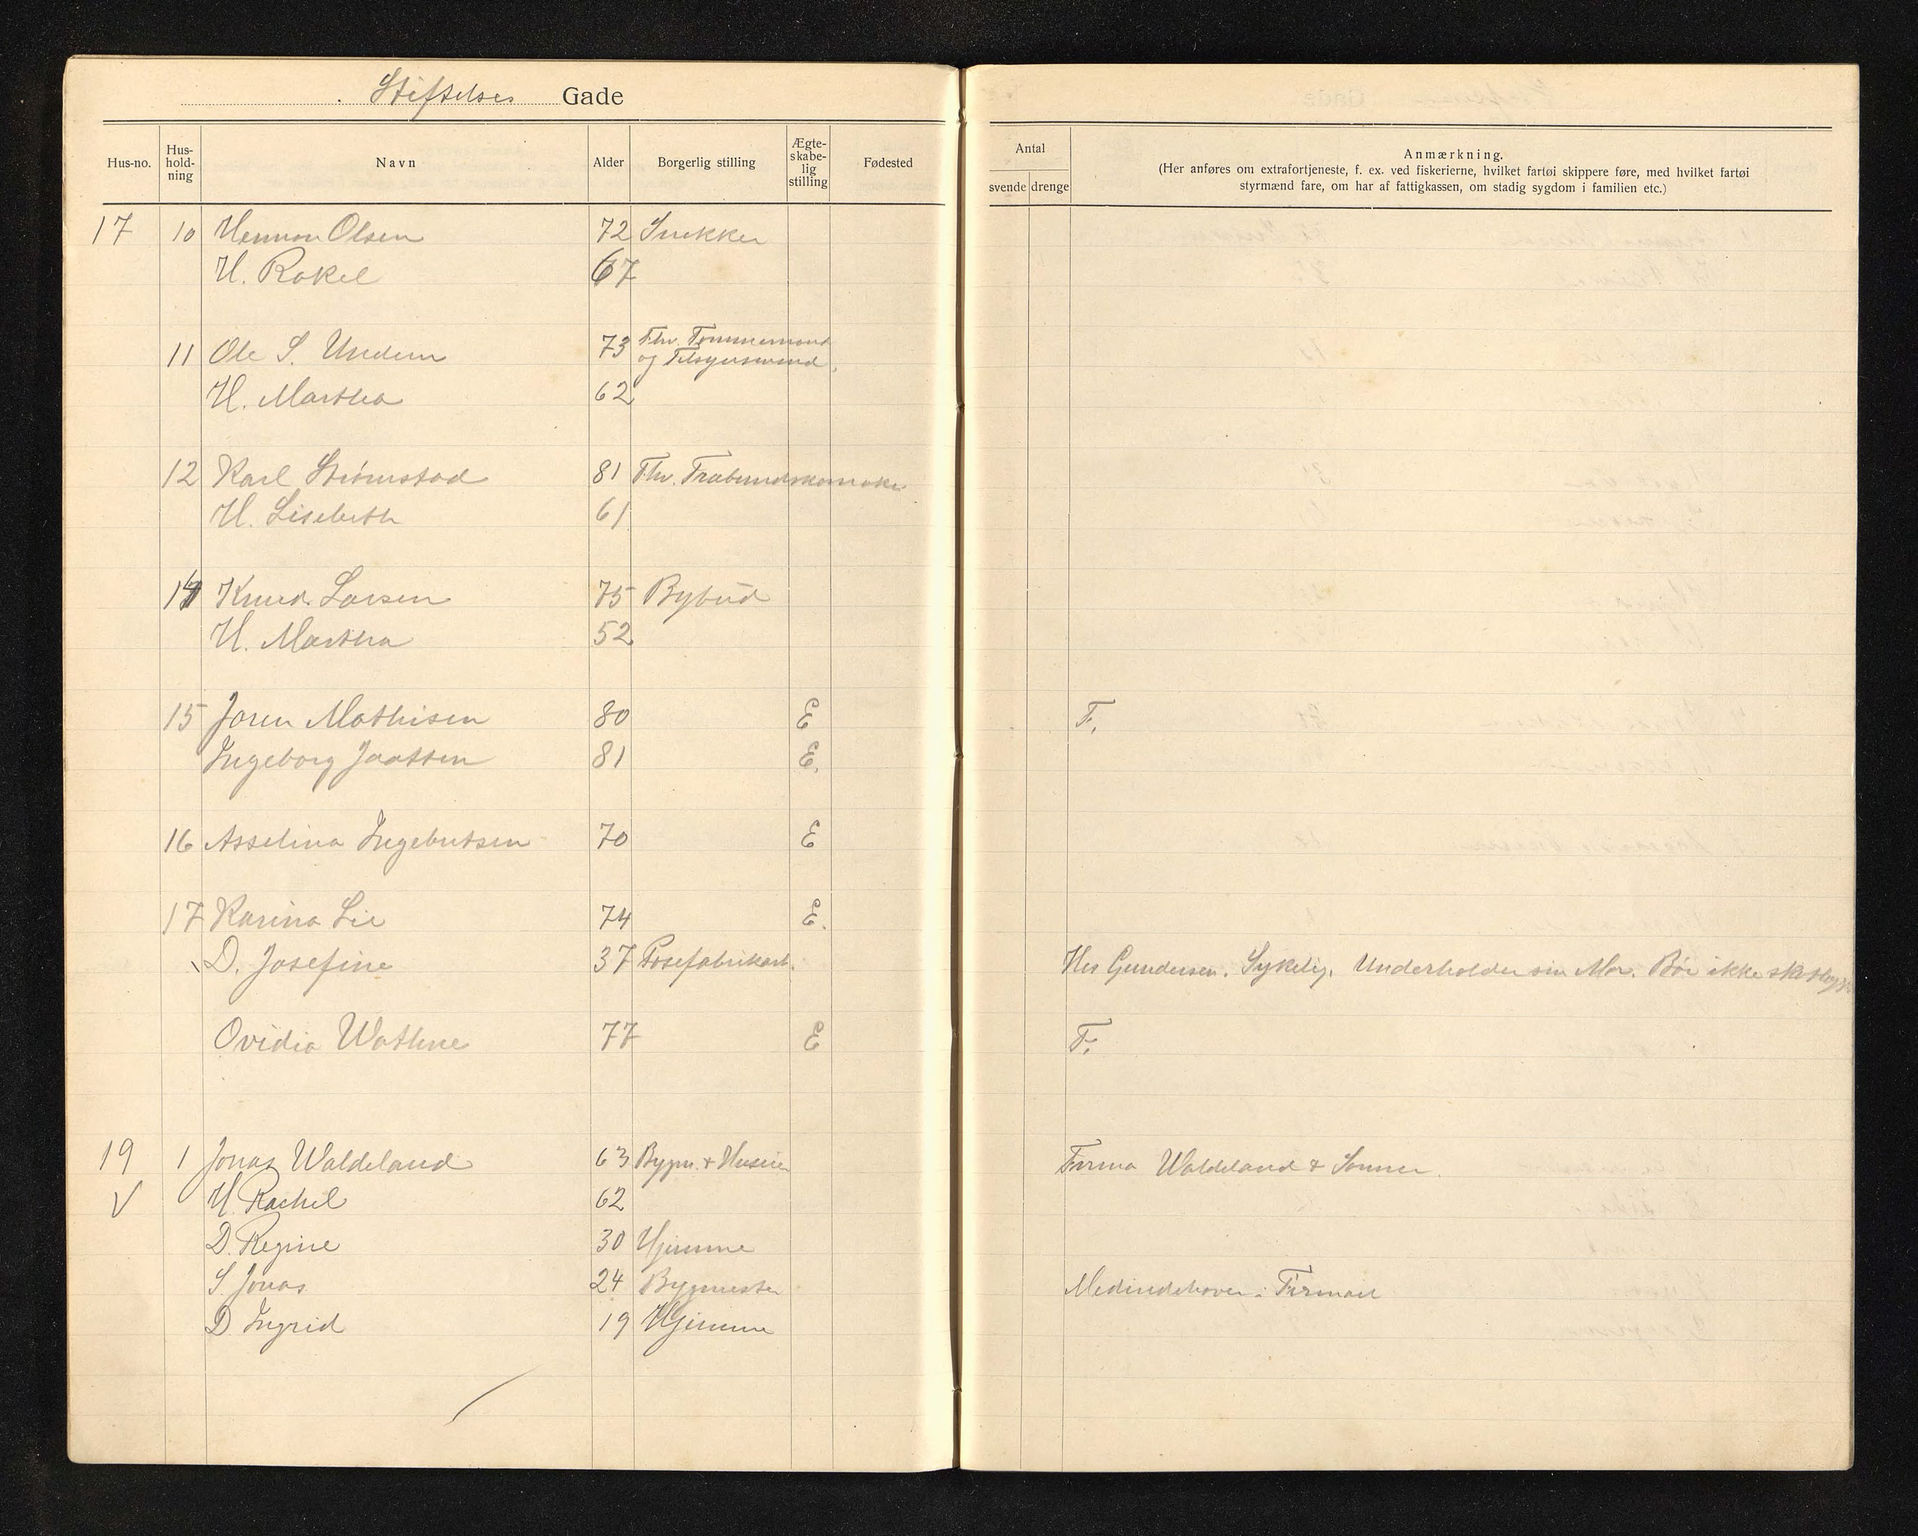 Stiftelses Gade
Hus-no. Hus-hold-ning Navn Alder Borgerlig stilling Ægte-skabe-lig stilling Fødested
Antal
svende drenge
Anmærkning.
(Her anføres om extrafortjeneste, f. ex. ved fiskerierne, hvilket fartøi skippere føre, med hvilket fartøi
styrmænd fare, om har af fattigkassen, om stadig sygdom i familien etc.)
17 10 Herman Olsen 72 Snekker
H. Rakel 67
11 Ole S. Undem 73 Fhv. Tømmermand
og Tilsynsmand.
H. Martha 62
12 Karl Strømstad 81 Fhv. Træbundskomaker
H. Lisebeth 61
14 Knud Larsen 75 Bybud
H. Martha 52
15 Joren Mathisen 80 E F.
Ingeborg Jaatten 81 E.
16 Asselina Ingebretsen 70 E
17 Karina Lie 74 E.
D. Josefine 37 Posefabrikarb. Hos Gundersen. Sykelig. Underholder sin Mor. Bør ikke
Ovidia Wathne 77 E F.
19 1 Jonas Waldeland 63 Bygm. + Huseier Firma Waldeland + Sønner.
V H. Rachel 62
D. Regine 30 Hjemme
S. Jonas 24 Bygmester Medindehaver i Firmaet
D Ingrid 19 Hjemme